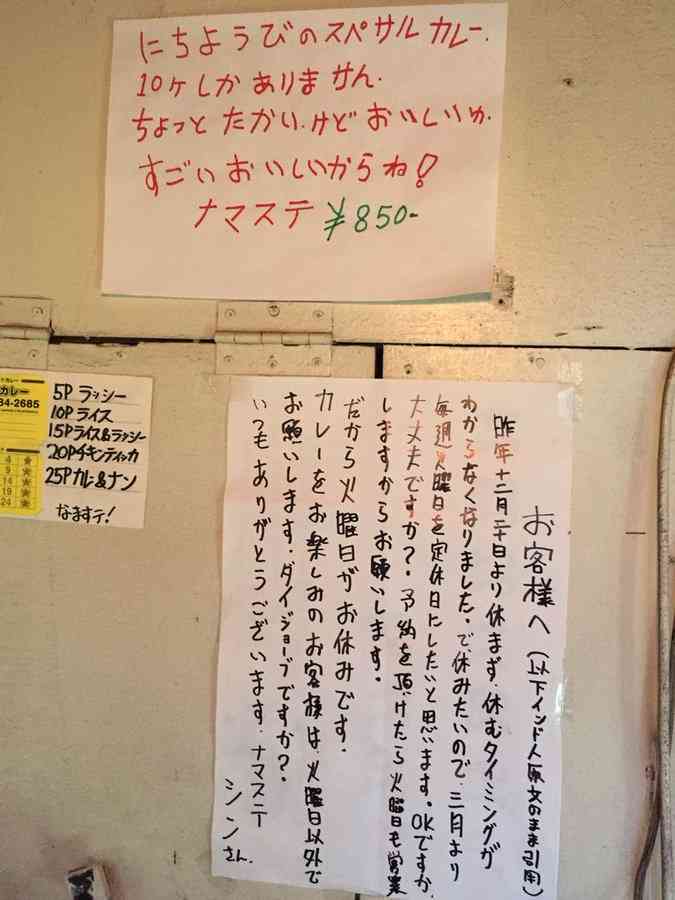 にちようびのスペサルカレー.
10ケしかありません.
ちょっとたかい.けどおいしいゅ.
すごいおいしいからね!
ナマステ ¥850-
カレー
34-2685
4 ★
9 ★
14 ★
19 ★
24 ★
5P ラッシー
10P ライス
15Pライス&ラッシー
20Pチキンティッカ
25Pカレー&ナン
なますテ!
お客様へ(以下インド人原文のまま引用)
昨年十二月二十日より休まず、休むタイミングが
わからなくなりました。で、休みたいので、三月より
毎週火曜日を定休日にしたいと思います。OKですか、
大丈夫ですか?。予約を頂けたら火曜日も営業
しますからお願いします。
だから火曜日がお休みです.
カレーをお楽しみのお客様は、火曜日以外で
お願いします.ダイジョーブですか?.
いつもありがとうございます.ナマステ
シンさん.